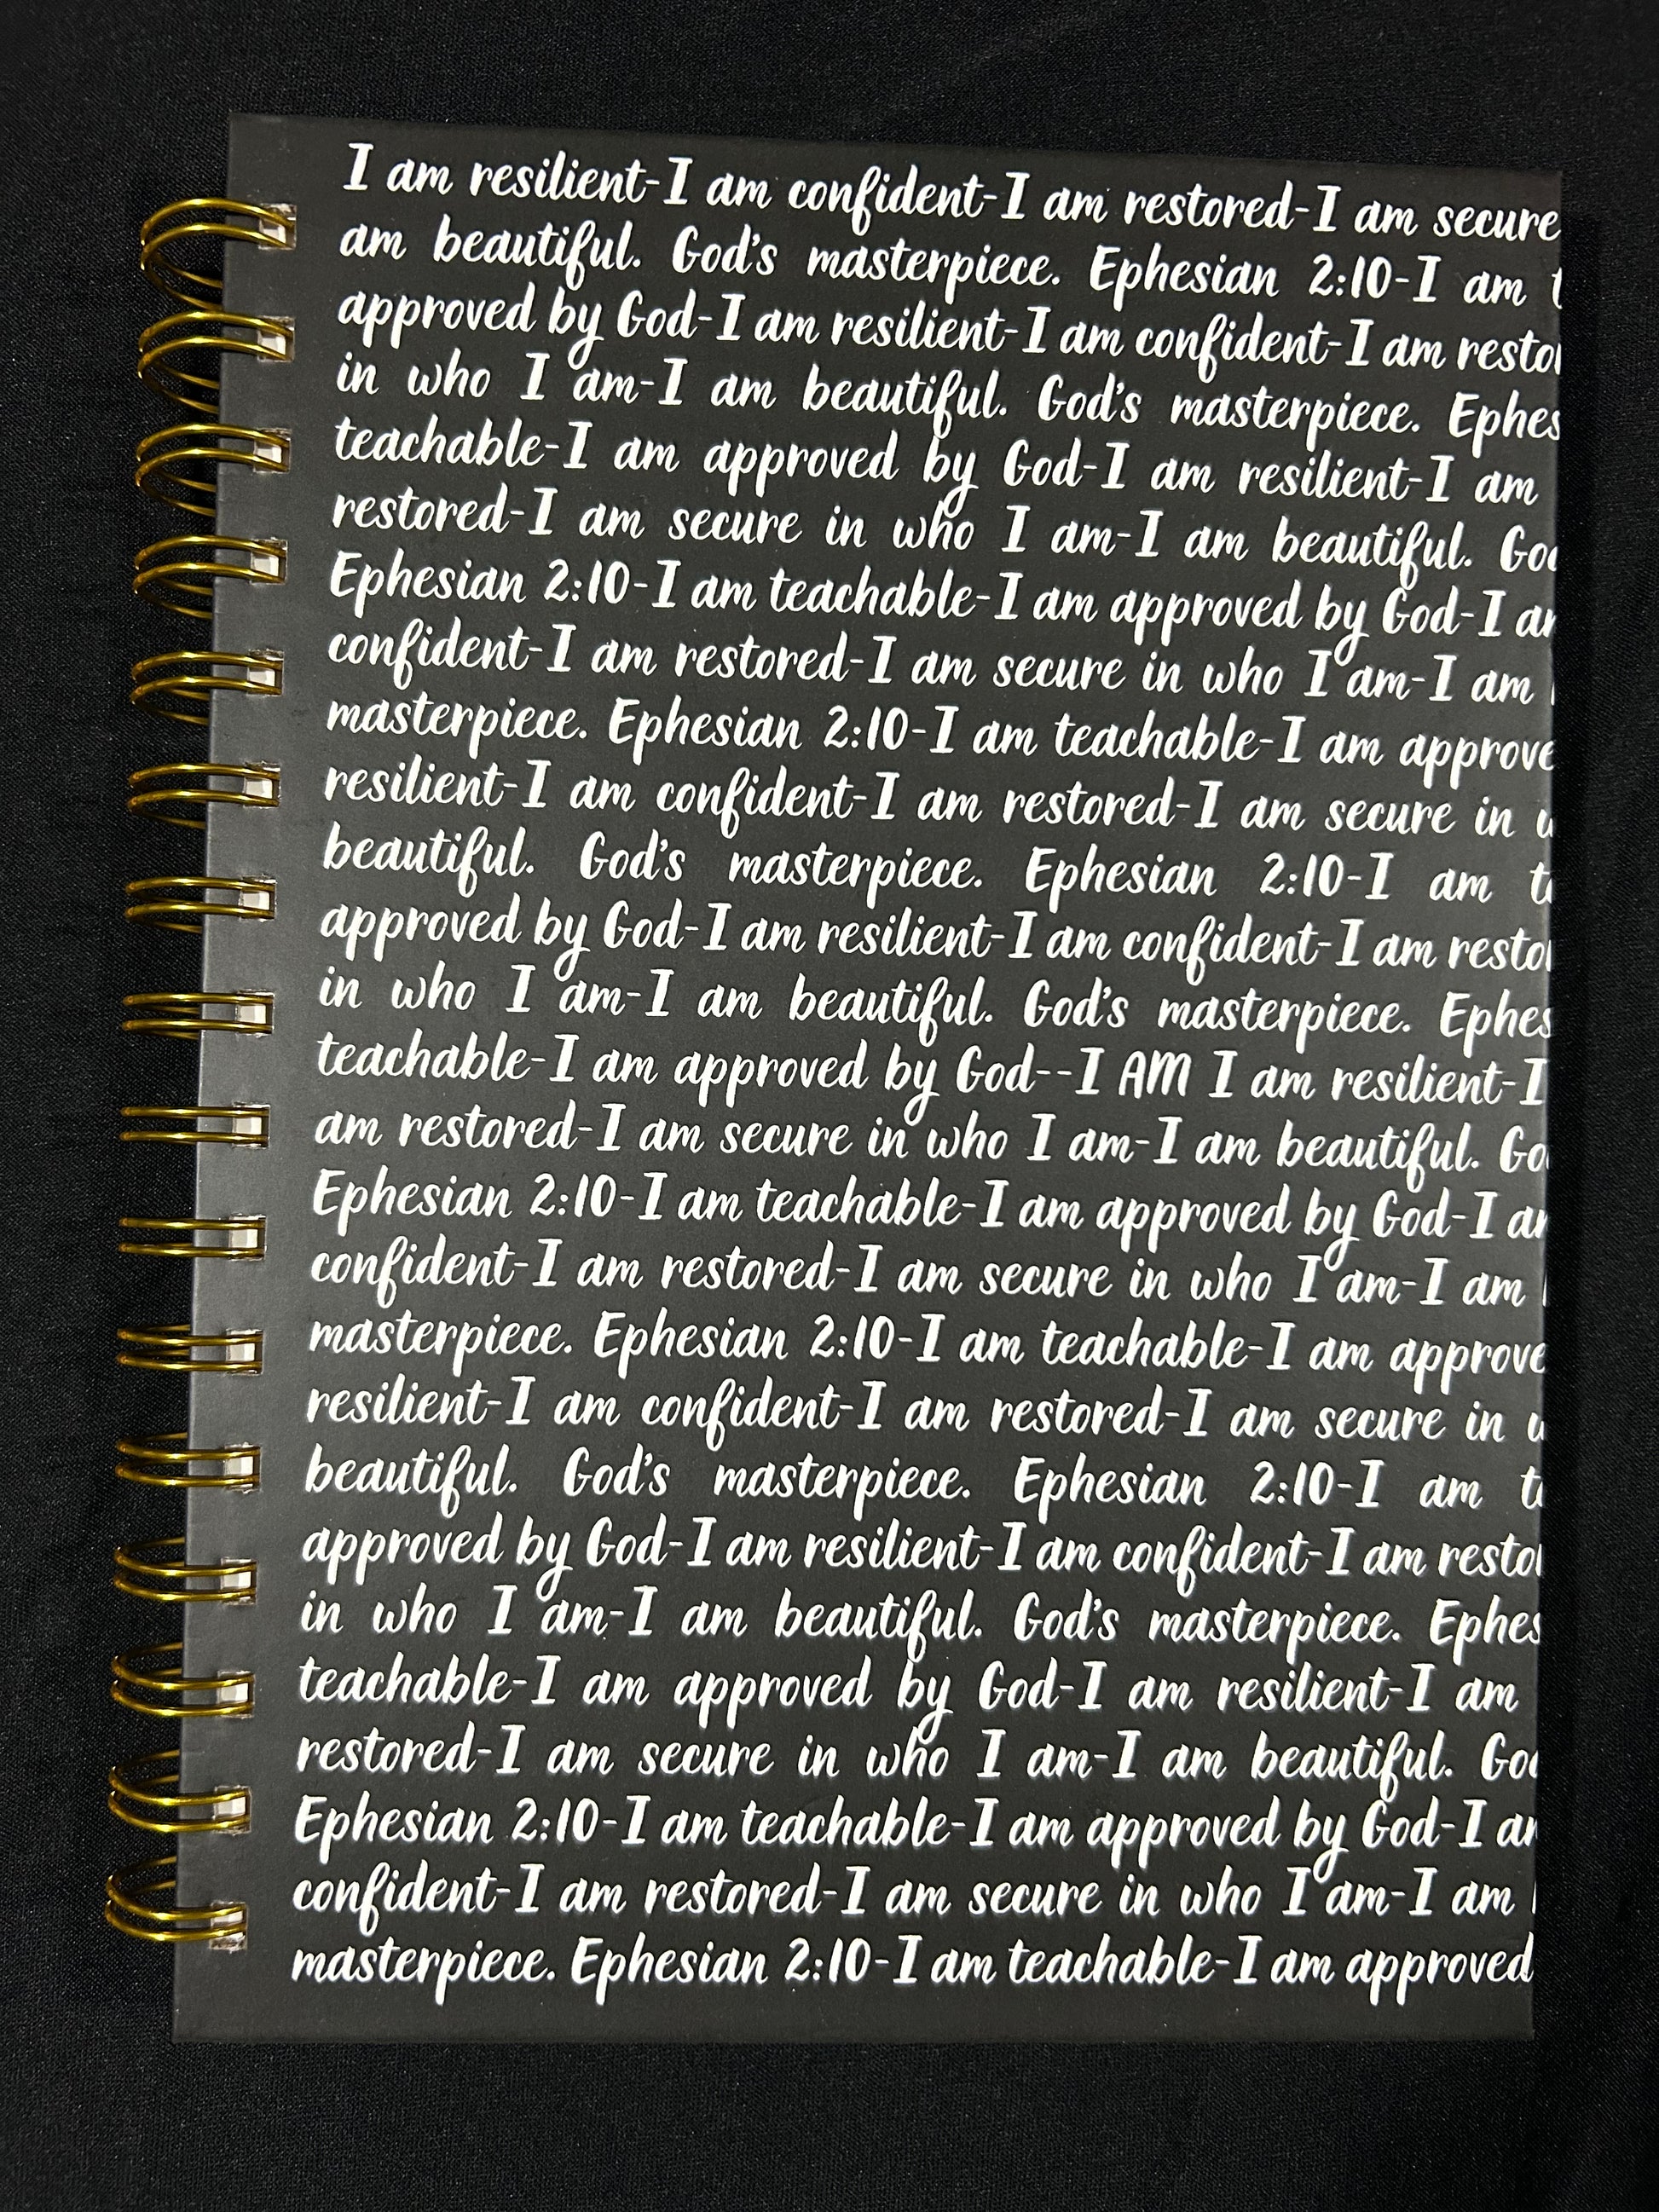 I am resilient-I am confident-I am restored-I am secure
am beautiful. God's masterpiece. Ephesian 2:10-I am
approved by God-I am resilient-I am confident-I am resto
in who I am-I am beautiful. God's masterpiece. Ephes
teachable-I am approved by God-I am resilient-I am
restored-I am secure in who I am-I am beautiful. Go
Ephesian 2:10-I am teachable-I am approved by God-I a
confident-I am restored-I am secure in who I am-I am
masterpiece. Ephesian 2:10-I am teachable-I am approve
resilient-I am confident-I am restored-I am secure in
beautiful. God's masterpiece. Ephesian 2:10-I am t
approved by God-I am resilient-I am confident-I am resto
in who I am-I am beautiful. God's masterpiece. Ephes
teachable-I am approved by God--I AM I am resilient-I
am restored-I am secure in who I am-I am beautiful. Go
Ephesian 2:10-I am teachable-I am approved by God-I a
confident-I am restored-I am secure in who I am-I am
masterpiece. Ephesian 2:10-I am teachable-I am approve
resilient-I am confident-I am restored-I am secure in
beautiful. God's masterpiece. Ephesian 2:10-I am t
approved by God-I am resilient-I am confident-I am resto
in who I am-I am beautiful. God's masterpiece. Ephes
teachable-I am approved by God-I am resilient-I am
restored-I am secure in who I am-I am beautiful. Go
Ephesian 2:10-I am teachable-I am approved by God-I a
confident-I am restored-I am secure in who I am-I am
masterpiece. Ephesian 2:10-I am teachable-I am approved